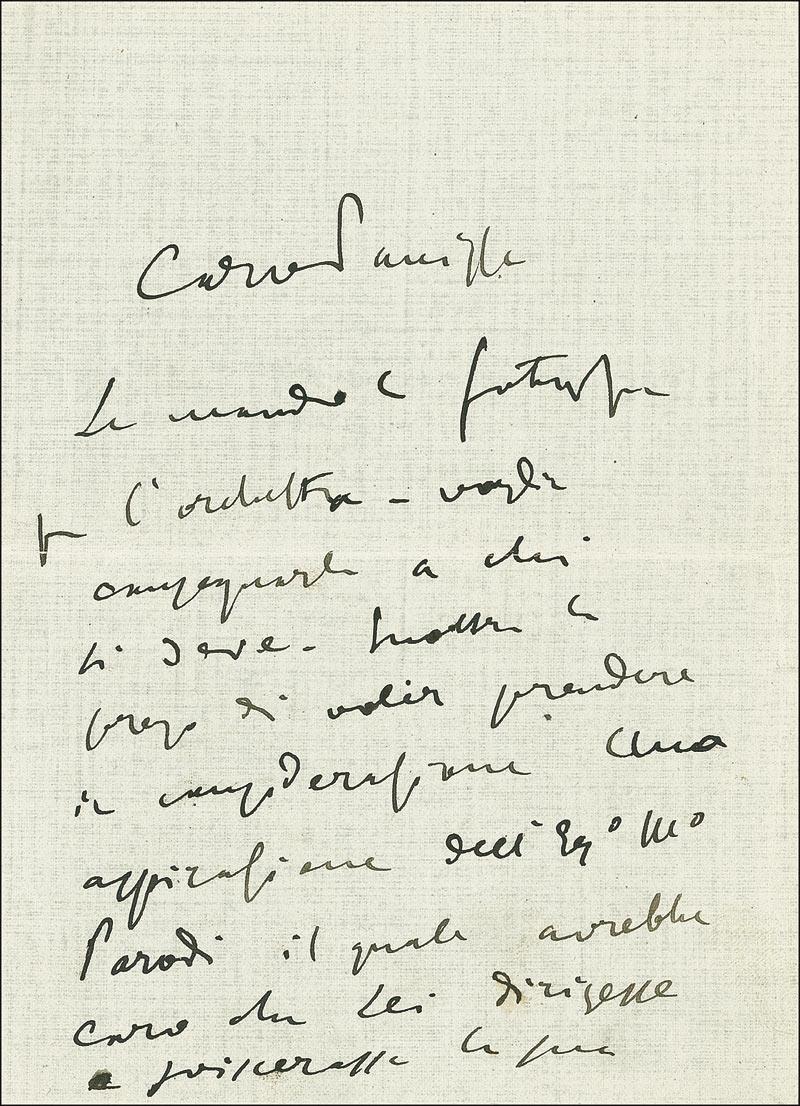 Caro Panizza
Le mando la fotografia
l'orchestra - voglia
consegnarla a chi
si deve. Inoltre la
prego di voler prendere
in considerazione una
aspirazione dell' Egº Mº
Parodi il quale avrebbe
caro che Lei dirigesse
e sviscerasse la sua